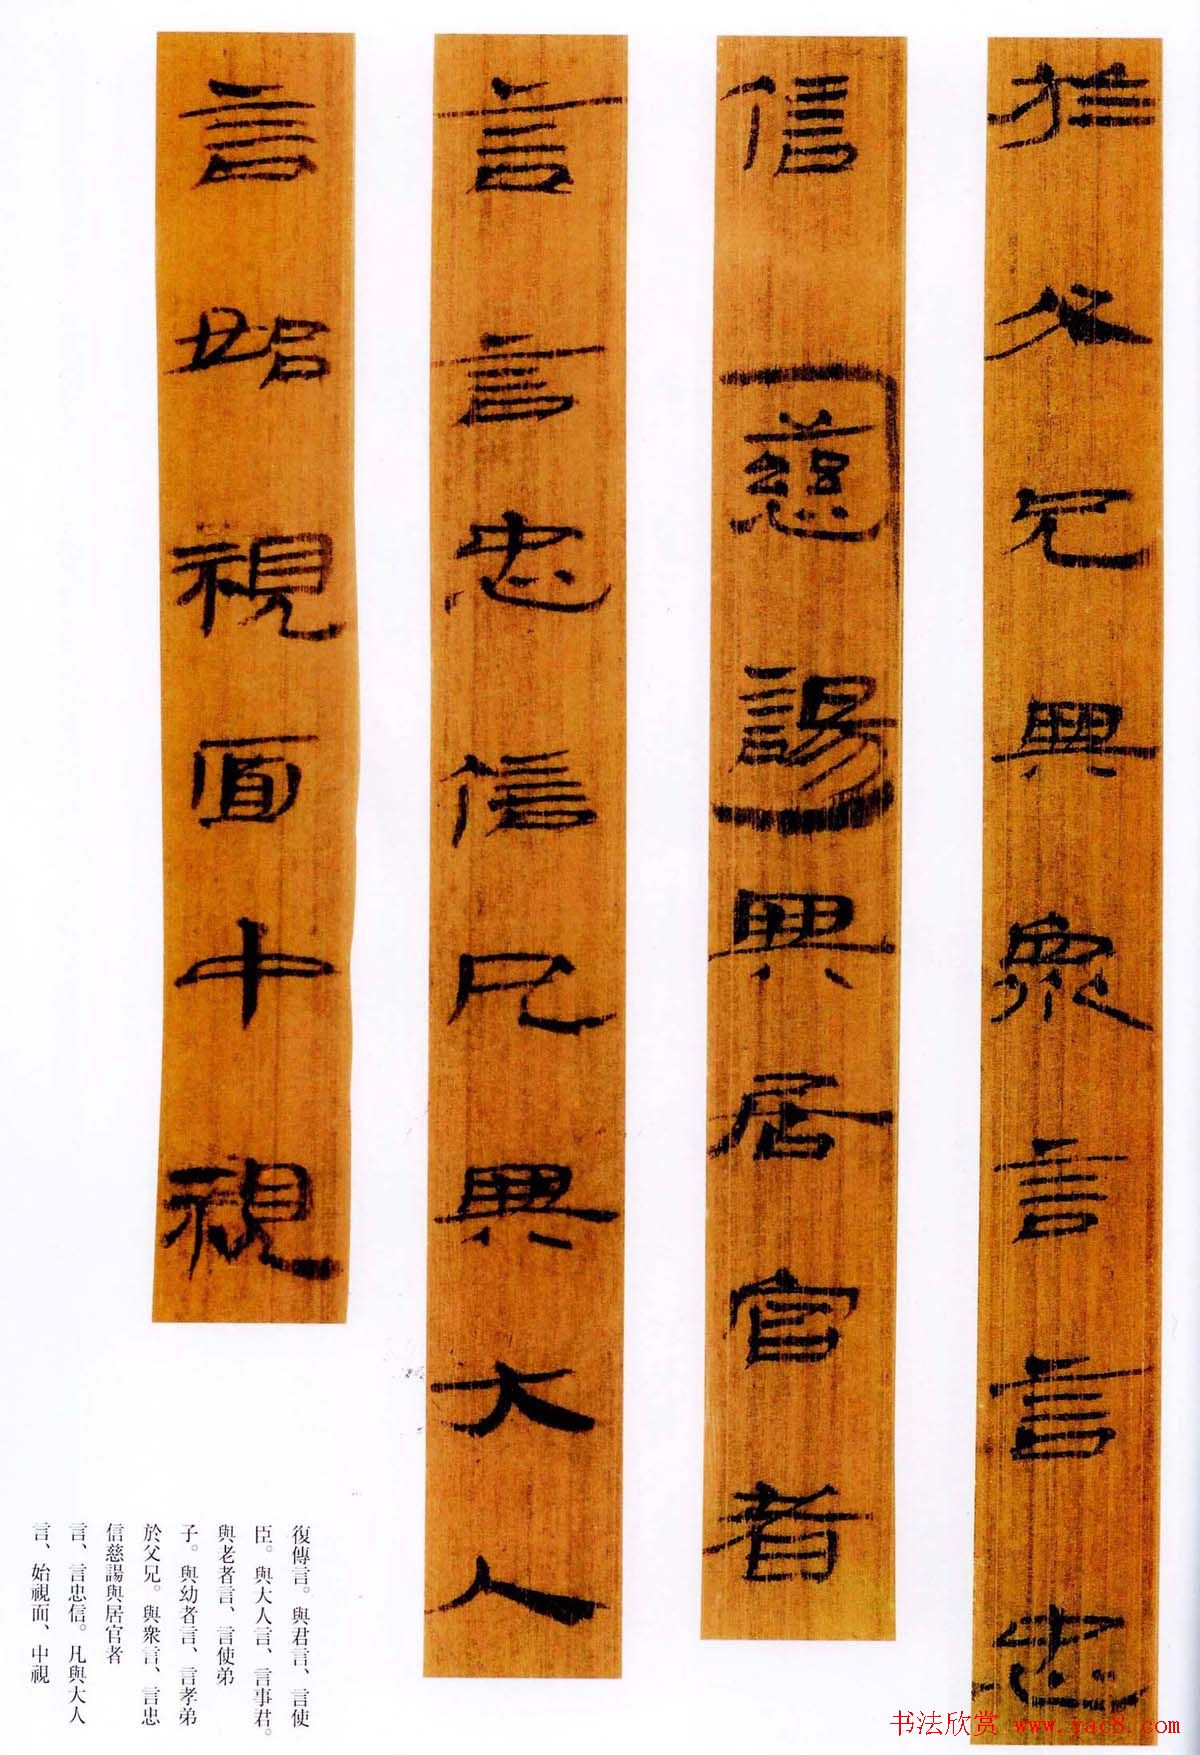 於父兄與衆言言忠
信慈諹與居官者
言言忠信凡與大人
言始視面中視
復傳言。與君言、言使
臣。與大人言、言事君。
與老者言、言使弟
子。與幼者言、言孝弟
於父兄。與衆言、言忠
信慈諹與居官者
言、言忠信。凡與大人
言、始視面、中視
书法欣赏 www.yac8.com